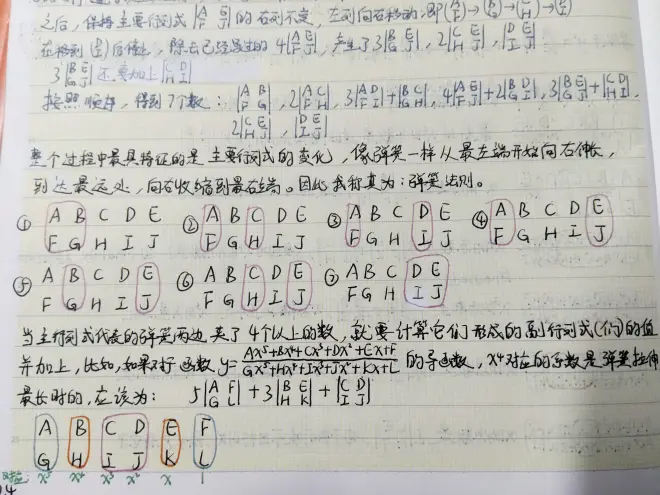 之后，保持主要行列式 |A E F J| 的右列不定，左列向右移动，即(A F)→(B G)→(C H)→(D I)
后停止，除去已经produced的 4|A E F J|，产生了3|B E G J|，2|C E H J|，|D E I J|
3|B E G J| 还要加上 |C D H I|
按照顺序，得到7个数：|A B F G|，2|A C F H|，3|A D F I|+|B C G H|，4|A E F J|+2|B D G I|，3|B E G J|+|C D H I|，
2|C E H J|，|D E I J|
整个过程中最具特征的是主要行列式的变化，像弹簧一样从最左端开始向右伸长，
到达最远处，向右收缩到最右端。因此我称其为：弹簧法则。
① A B C D E ② A B C D E ③ A B C D E ④ A B C D E
F G H I J F G H I J F G H I J F G H I J
⑤ A B C D E ⑥ A B C D E ⑦ A B C D E
F G H I J F G H I J F G H I J
当主行列式代表的弹簧两边夹了4个以上的数，就要计算它们形成的副行列式(们)的值
并加上，比如，如果对于函数 y=(Ax⁵+Bx⁴+Cx³+Dx²+Ex+F)/(Gx⁵+Hx⁴+Ix³+Jx²+Kx+L) 的导函数，x⁴对应的系数是弹簧拉伸
最长时的，应该为： 5|A F G L|+3|B E H K|+|C D I J|
A B C D E F
G H I J K L
对应: x⁵ x⁴ x³ x² x 1